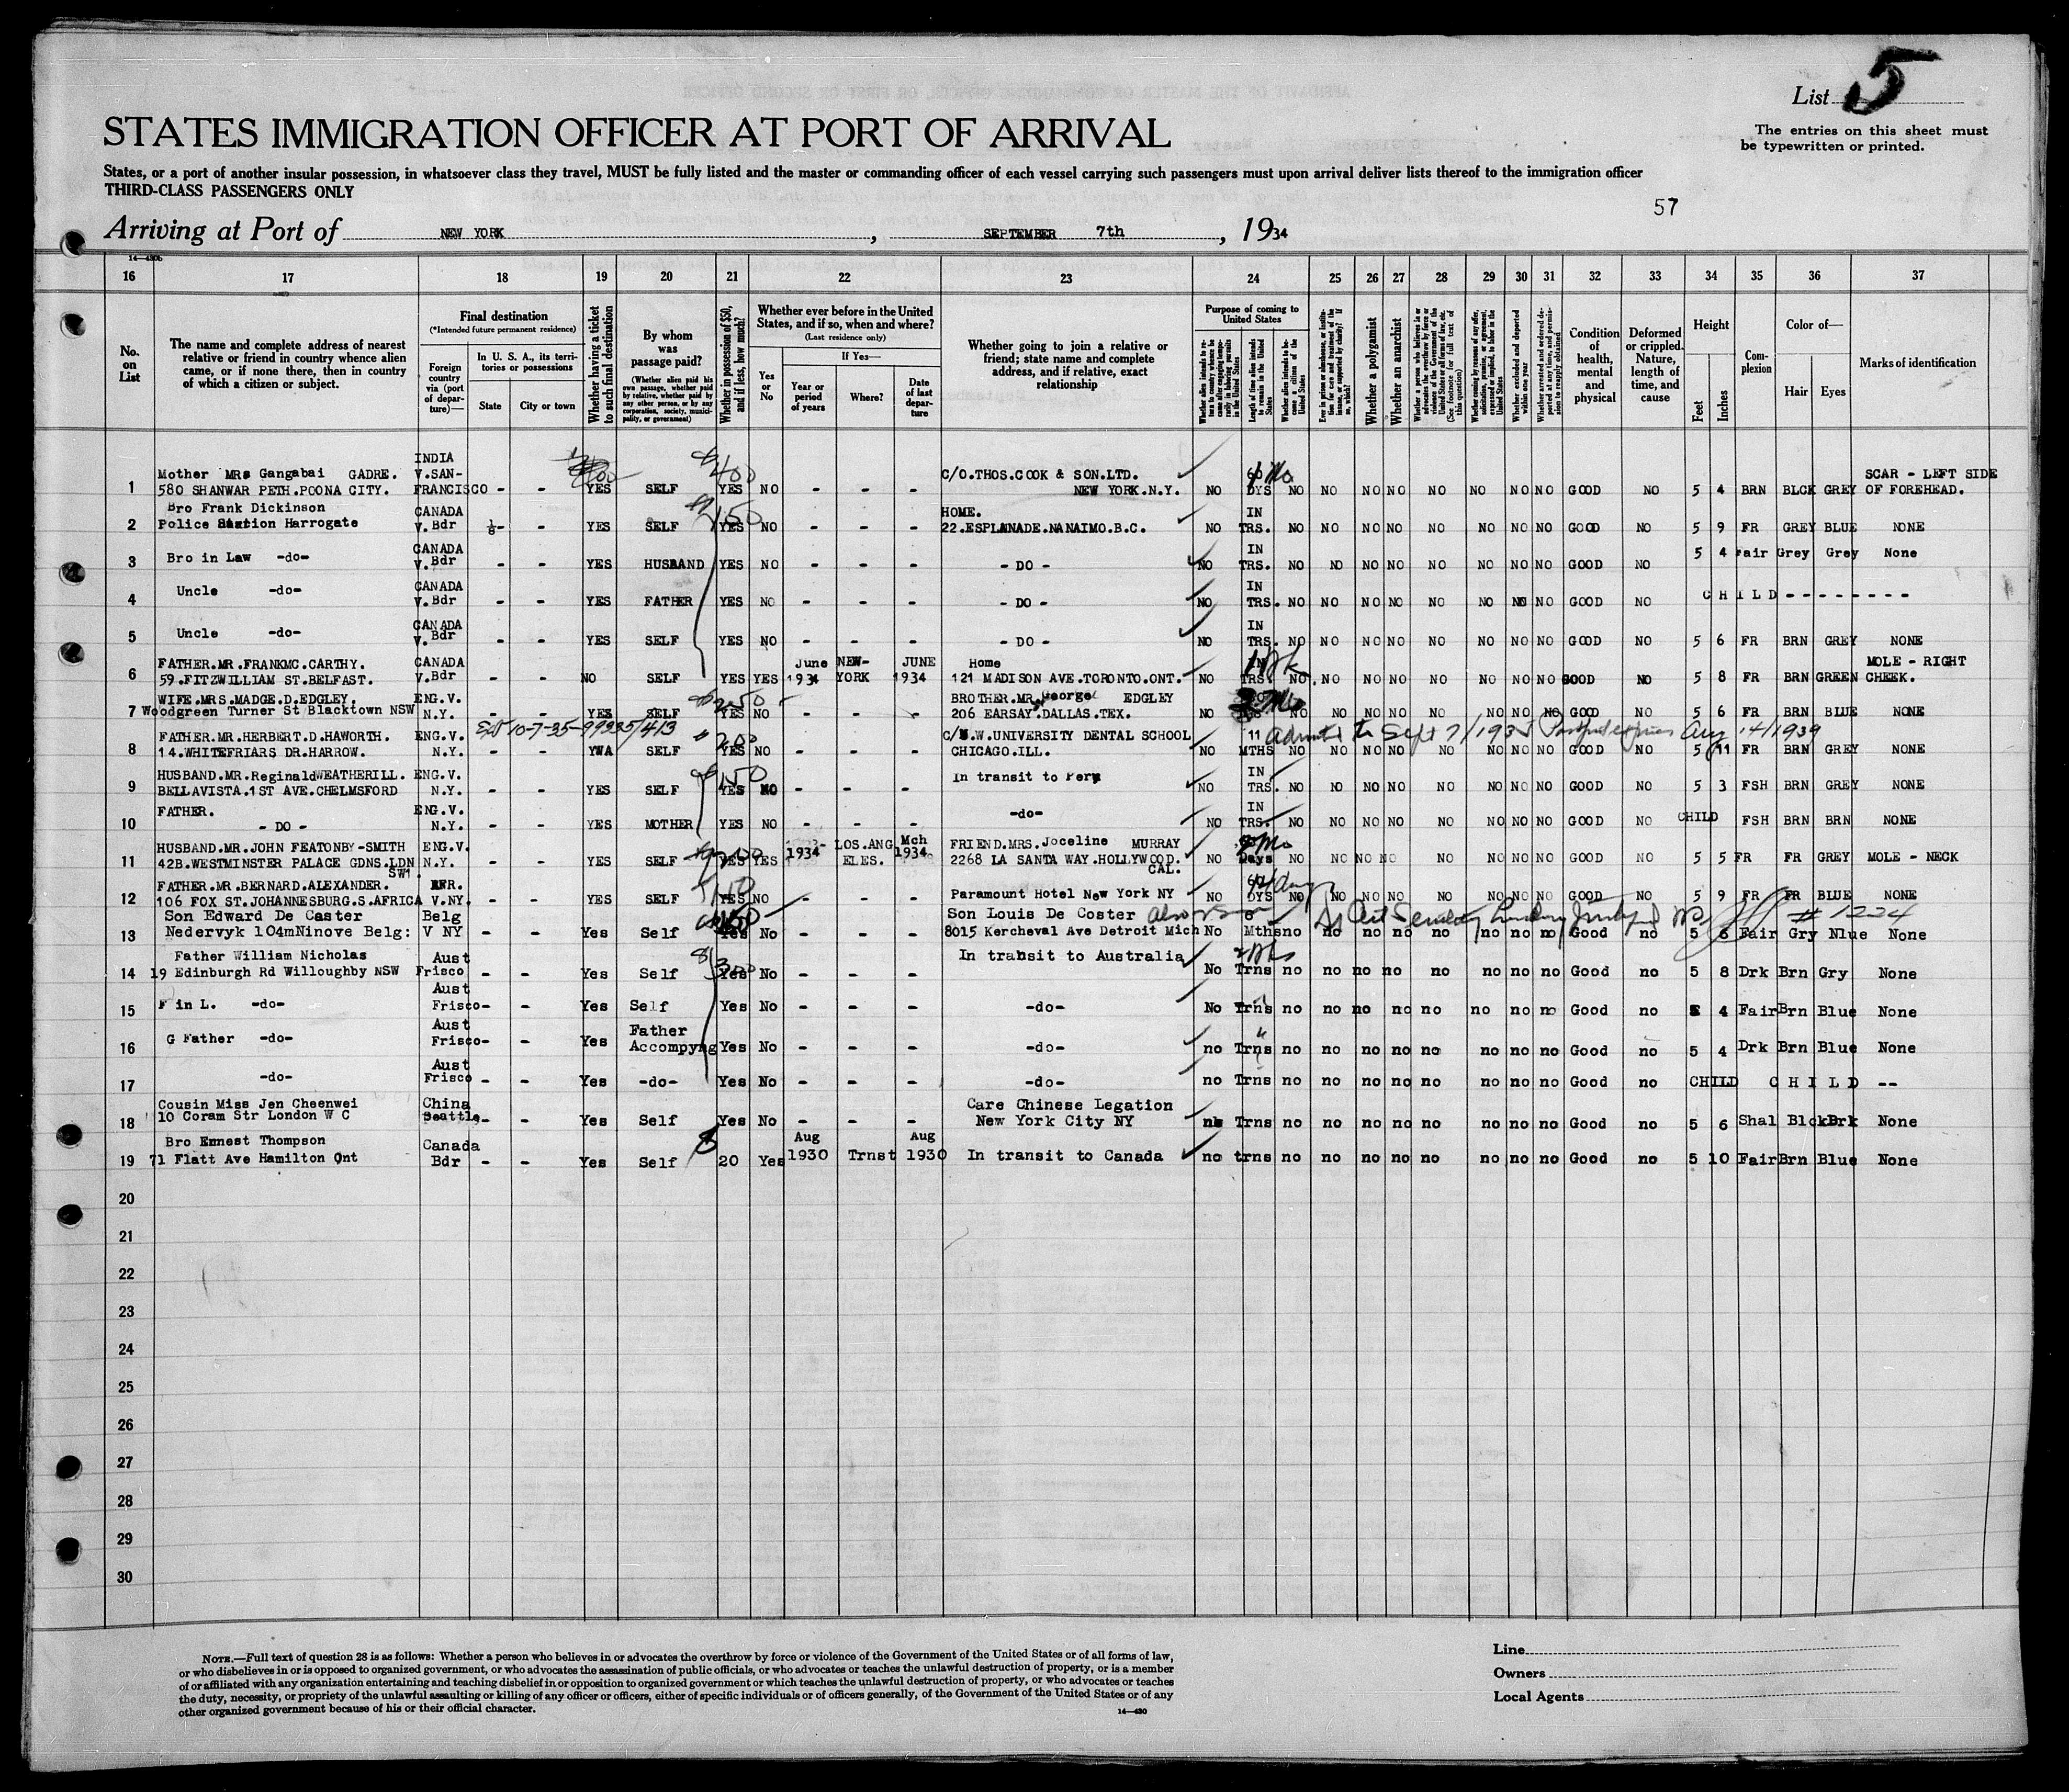 List 5
STATES IMMIGRATION OFFICER AT PORT OF ARRIVAL
The entries on this sheet must
be typewritten or printed.
States, or a port of another insular possession, in whatsoever class they travel, MUST be fully listed and the master or commanding officer of each vessel carrying such passengers must upon arrival deliver lists thereof to the immigration officer
THIRD-CLASS PASSENGERS ONLY
57
Arriving at Port of NEW YORK, SEPTEMBER 7th, 1934
14—430b
16 17 18 19 20 21 22 23 24 25 26 27 28 29 30 31 32 33 34 35 36 37
No. on List
The name and complete address of nearest relative or friend in country whence alien came, or if none there, then in country of which a citizen or subject.
Final destination
(*Intended future permanent residence)
Foreign country via (port of departure)—
In U. S. A., its territories or possessions
State
City or town
Whether having a ticket to such final destination
By whom was passage paid?
(Whether alien paid his own passage, whether paid by relative, whether paid by any other person, or by any corporation, society, municipality, or government)
Whether in possession of $50, and if less, how much?
Whether ever before in the United States, and if so, when and where?
(Last residence only)
Yes or No
If Yes—
Year or period of years
Where?
Date of last departure
Whether going to join a relative or friend; state name and complete address, and if relative, exact relationship
Purpose of coming to United States
Length of time alien intends to remain in the United States
Whether alien intends to become a citizen of the United States
Whether a polygamist
Whether an anarchist
Condition of health, mental and physical
Deformed or crippled. Nature, length of time, and cause
Height
Feet
Inches
Complexion
Color of—
Hair
Eyes
Marks of identification
INDIA
Mother MRs Gangabai GADRE. V.SAN- C/O.THOS.COOK & SON.LTD. SCAR - LEFT SIDE
1 580 SHANWAR PETH.POONA CITY. FRANCISCO - - YES SELF YES NO - - - NEW YORK.N.Y. NO DYS NO NO NO NO NO NO NO NO GOOD NO 5 4 BRN BLCK GREY OF FOREHEAD.
Bro Frank Dickinson CANADA HOME. IN
2 Police Station Harrogate V.Bdr - - YES SELF YES NO - - - 22.ESPLANADE.NANAIMO.B.C. NO TRS. NO NO NO NO NO NO NO NO GOOD NO 5 9 FR GREY BLUE NONE
CANADA IN
3 Bro in Law -do- V.Bdr - - YES HUSBAND YES NO - - - - DO - NO TRS. NO NO NO NO NO NO NO NO GOOD NO 5 4 Fair Grey Grey None
CANADA IN
4 Uncle -do- V.Bdr - - YES FATHER YES NO - - - - DO - NO TRS. NO NO NO NO NO NO NO NO GOOD NO CHILD - - - - - - - -
CANADA IN
5 Uncle -do- V.Bdr - - YES SELF YES NO - - - - DO - NO TRS. NO NO NO NO NO NO NO NO GOOD NO 5 6 FR BRN GREY NONE
FATHER.MR.FRANKMC.CARTHY. CANADA June NEW- JUNE Home MOLE - RIGHT
6 59.FITZWILLIAM ST.BELFAST. V.Bdr - - NO SELF YES YES 1934 YORK 1934 121 MADISON AVE.TORONTO.ONT. NO TRS NO. NO NO NO NO NO NO NO GOOD NO 5 8 FR BRN GREEN CHEEK.
WIFE.MRS.MADGE.D.EDGLEY. ENG.V. $250 BROTHER.MR.George EDGLEY
7 Woodgreen Turner St Blacktown NSW N.Y. - - YES SELF YES NO - - - 206 EARSAY.DALLAS.TEX. NO NO NO NO NO NO NO NO NO GOOD NO 5 6 FR BRN BLUE NONE
FATHER.MR.HERBERT.D.HAWORTH. ENG.V. $200 UNIVERSITY DENTAL SCHOOL 11 admit to Sept 7/1935 Passport expires Aug 14/1939
8 14.WHITEFRIARS DR.HARROW. N.Y. - - YWA SELF YES NO - - - CHICAGO.ILL. NO MTHS NO NO NO NO NO NO NO NO GOOD NO 5 11 FR BRN GREY NONE
HUSBAND.MR.Reginald WEATHERILL. ENG.V. $150 In transit to Peru IN
9 BELLAVISTA.1ST AVE.CHELMSFORD N.Y. - - YES SELF YES NO - - - NO TRS. NO NO NO NO NO NO NO NO GOOD NO 5 3 FSH BRN GREY NONE
FATHER. ENG.V. -do- IN
10 - DO - N.Y. - - YES MOTHER YES NO - - - NO TRS. NO NO NO NO NO NO NO NO GOOD NO CHILD FSH BRN BRN NONE
HUSBAND.MR.JOHN FEATONBY-SMITH ENG.V. LOS.ANG Mch FRIEND.MRS.Joceline MURRAY
11 42B.WESTMINSTER PALACE GDNS.LDN SW1. N.Y. - - YES SELF YES YES 1934 ELES. 1934 2268 LA SANTA WAY.HOLLYWOOD. CAL. NO Days NO NO NO NO NO NO NO NO GOOD NO 5 5 FR FR GREY MOLE - NECK
FATHER.MR.BERNARD.ALEXANDER. AFR. $150
12 106 FOX ST.JOHANNESBURG.S.AFRICA V.NY. - - YES SELF YES NO - - - Paramount Hotel New York NY NO DYS NO NO NO NO NO NO NO NO GOOD NO 5 9 FR FR BLUE NONE
Son Edward De Caster Belg Son Louis De Coster 6 # 1224
13 Nedervyk 104mNinove Belg: V NY - - Yes Self Yes No - - - 8015 Kercheval Ave Detroit Mich No Mths no no no no no no no no Good no 5 6 Fair Gry Nlue None
Father William Nicholas Aust In transit to Australia
14 19 Edinburgh Rd Willoughby NSW Frisco - - Yes Self Yes No - - - No Trns no no no no no no no no Good no 5 8 Drk Brn Gry None
Aust
15 F in L. -do- Frisco- - Yes Self Yes No - - - -do- No Trns no no no no no no no no Good no 5 4 Fair Brn Blue None
Aust Father
16 G Father -do- Frisco- - Yes Accompyng Yes No - - - -do- no Trns no no no no no no no no Good no 5 4 Drk Brn Blue None
Aust
17 -do- Frisco - - Yes -do- Yes No - - - -do- no Trns no no no no no no no no Good no CHILD CHILD --
Cousin Miss Jen Cheenwei China Care Chinese Legation
18 10 Coram Str London W C Seattle- - Yes Self Yes No - - - New York City NY no Trns no no no no no no no no Good no 5 6 Shal Blck Brk None
Bro Ernest Thompson Canada Aug Aug
19 71 Flatt Ave Hamilton Ont Bdr - - Yes Self 20 Yes 1930 Trnst 1930 In transit to Canada no trns no no no no no no no no Good no 5 10 Fair Brn Blue None
20
21
22
23
24
25
26
27
28
29
30
NOTE.—Full text of question 28 is as follows: Whether a person who believes in or advocates the overthrow by force or violence of the Government of the United States or of all forms of law,
or who disbelieves in or is opposed to organized government, or who advocates the assassination of public officials, or who advocates or teaches the unlawful destruction of property, or is a member
of or affiliated with any organization entertaining and teaching disbelief in or opposition to organized government or which teaches the unlawful destruction of property, or who advocates or teaches
the duty, necessity, or propriety of the unlawful assaulting or killing of any officer or officers, either of specific individuals or of officers generally, of the Government of the United States or of any
other organized government because of his or their official character.
14—430
Line
Owners
Local Agents